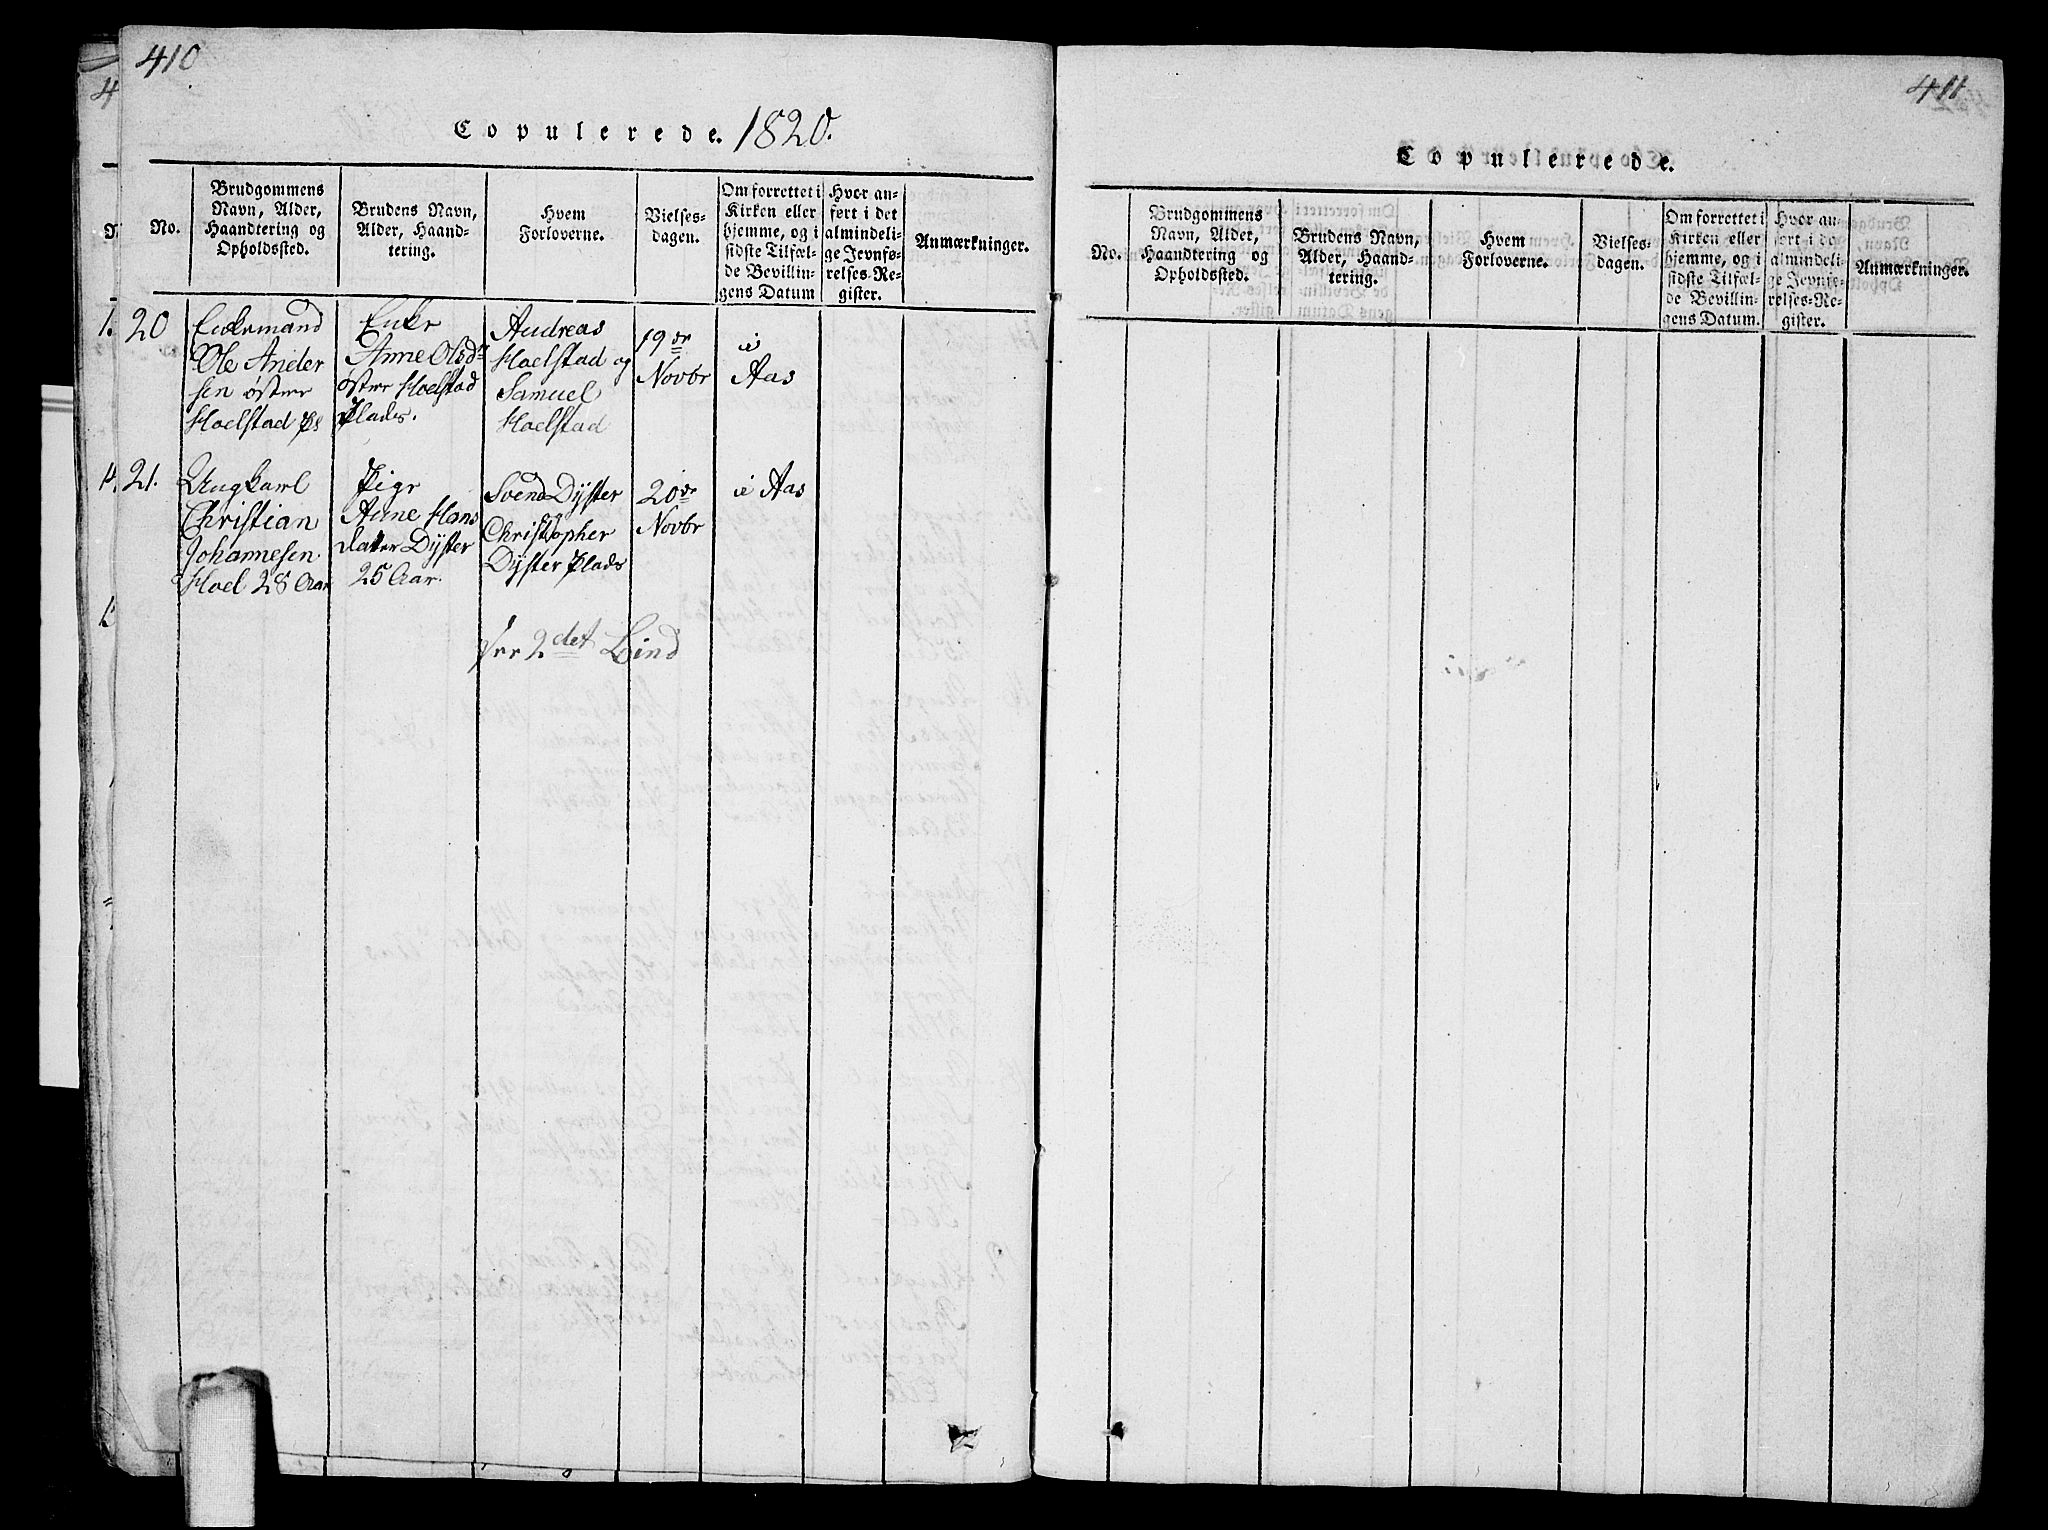 410
Copulerede. 1820.
No.
Brudgommens
Navn, Alder,
Haandtering og
Opholdssted.
Brudens Navn,
Alder, Haand-
tering.
Hvem
Forloverne.
Vielses-
dagen.
Om forrettet i
Kirken eller
hjemme, og i
sidste Tilfæl-
de Bevillin-
gens Datum
Hvor an-
ført i det
almindeli-
ge Jevnfø-
relses-Re-
gister.
Anmærkninger.
20
Enkemand
Ole Ander
sen østre
Hoelstad Ps
Enke
Anne Olsdr
østre Hoelstad
Plads.
Andreas
Hoelstad og
Samuel
Hoelstad
19de
Novbr
i
Aas
21.
Ungkarl
Christian
Johannesen
Hoel 28 Aar
Pige
Anne Hans
datter Dyster
25 Aar.
Svend Dyster
Christopher
Dyster Plads
20de
Novbr
i Aas
See 2det Bind
411
Copulerede.
No.
Brudgommens
Navn, Alder,
Haandtering og
Opholdssted.
Brudens Navn,
Alder, Haand-
tering.
Hvem
Forloverne.
Vielses-
dagen.
Om forrettet i
Kirken eller
hjemme, og i
sidste Tilfæl-
de Bevillin-
gens Datum.
Hvor an-
ført i de
almindeli-
ge Jevnfø-
relses-Re-
gister.
Anmærkninger.